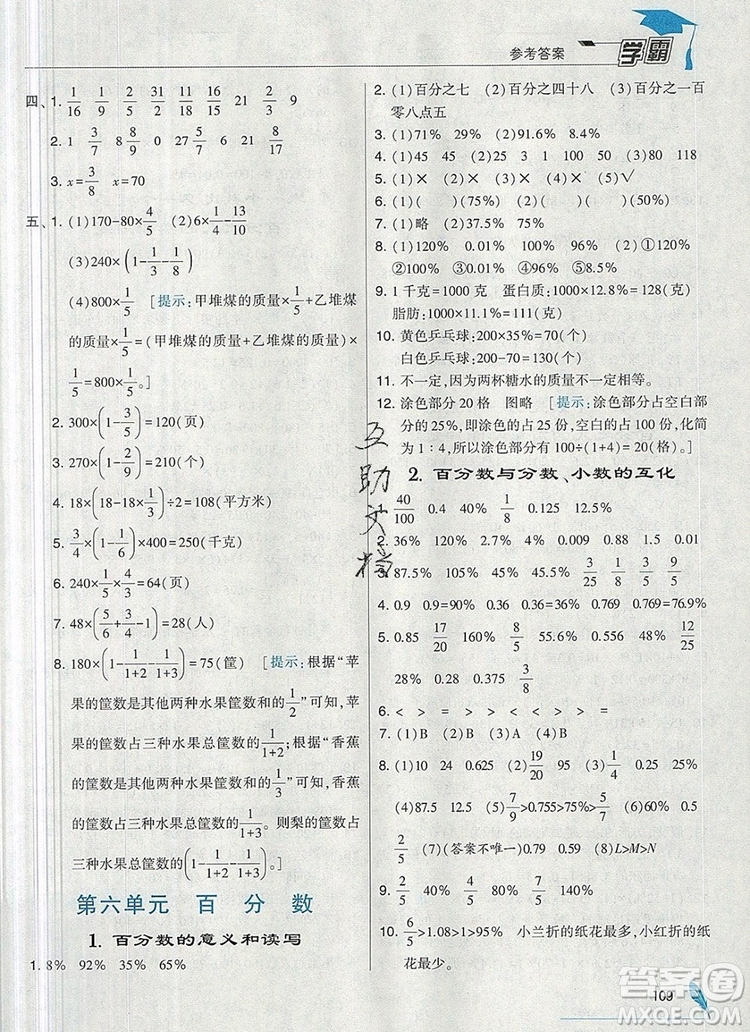 参考答案 学霸
四、1. 1/16 9 1/31 2/31 11/16 16/15 21 2/3 9
2. 1 3/7 8 8/9 0 27 5/7 6 21 8/17
3. x=3/8 x=70
五、1. (1)170-80×4/5 (2)6×1/4-13/10
(3)240×(1-1/3-1/8)
(4)800×1/5 [提示:甲堆煤的质量×1/5+乙堆煤
的质量×1/5=(甲堆煤的质量+乙堆煤的质量)×
1/5=800×1/5。]
2. 300×(1-3/5)=120(页)
3. 270×(1-2/9)=210(个)
4. 18×(18-18×1/3)÷2=108(平方米)
5. 3/4×(1-1/6)×400=250(千克)
6. 240×1/5×4/3=64(页)
7. 48×(5/6+3/4-1)=28(人)
8. 180×(1-1/1+2-1/1+3)=75(筐) [提示:根据“苹
果的筐数是其他两种水果筐数的1/2”可知,苹
果的筐数占三种水果总筐数的1/1+2;根据“香蕉
的筐数是其他两种水果筐数的1/3”可知,香蕉
的筐数占三种水果总筐数的1/1+3。则梨的筐数
占三种水果总筐数的(1-1/1+2-1/1+3)。]
第六单元 百分数
1. 百分数的意义和读写
1. 8% 92% 35% 65%
2. (1)百分之七 (2)百分之四十八 (3)百分之一百
零八点五
3. (1)71% 29% (2)91.6% 8.4%
4. (1)45 45 (2)25 3 1 100 50 80 118
5. (1)× (2)× (3)× (4)× (5)√
6. (1)( )(75%) (2)( )( )(50%)
7. (1)略 (2)37.5% 75%
8. (1)120% 0.01% 100% 96% (2)①120%
②100% ③0.01% ④96% ⑤8.5%
9. 1千克=1000克 蛋白质:1000×12.8%=128(克)
脂肪:1000×11.1%=111(克)
10. 黄色乒乓球:200×35%=70(个)
白色乒乓球:200-70=130(个)
11. 不一定,因为两杯糖水的质量不一定相等。
12. 涂色部分20格 图略 [提示:涂色部分占空白部
分的25%,即涂色的占25份,空白的占100份,化简
为1:4,所以涂色部分有100÷(1+4)=20(格)。]
2. 百分数与分数、小数的互化
1. 40/100 0.4 40% 1/8 0.125 12.5%
2. 36% 120% 2.7% 4% 0.009 0.188 1.5 0.01
3. 87.5% 105% 160% 85% 3/25 1/8 3/5 9/5
4. 0.9 0.9=90% 0.16 0.16=16% 0.36 0.36=36% 0.769 0.769=76.9%
5. 0.85 17/20 160% 8/5 0.6 60% 0.48 12/25
28% 0.28 0.375 3/8
6. < > = > > < < > > =
7. (1)B (2)B (3)A (4)B
8. (1)10 24 0.625 (2)19/20 95 (3)1/4 25
(4)87.5 12.5 (5)7/9>0.755>75%>0.7 (6)40 0.4
2/5 (7)(答案不唯一)0.79 0.59 (8)L>M>N
9. 2/5 40% 0.4 4/5 80% 0.8 1/2 50% 0.5
10. 6/5>1.08>1>95% 小兰折的纸花最多,小红折的纸
花最少。
互助文档
答案圈
MXQE.COM
109